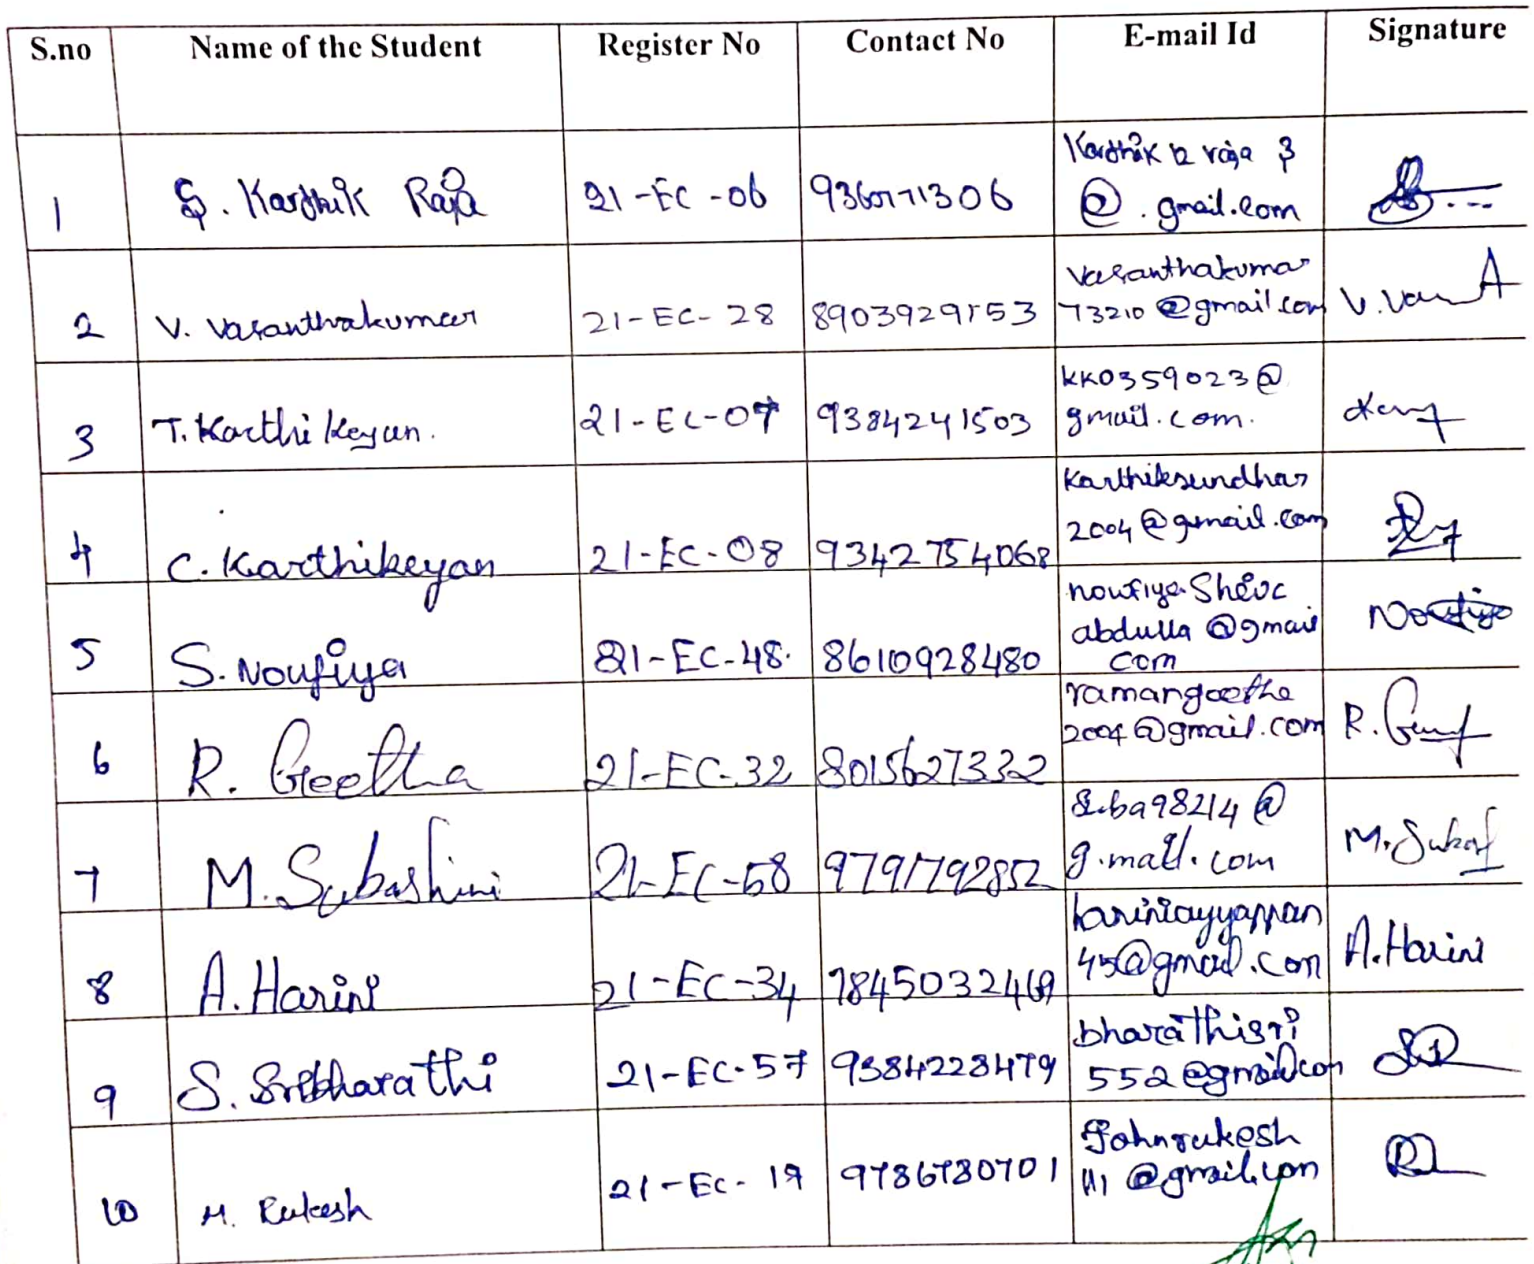 S.no Name of the Student Register No Contact No E-mail Id Signature
1 S. Karthik Raja 21-EC-06 9360771306 Karthik 12 raja 3
@ . gmail.com
2 V. Vasanthakumar 21-EC-28 8903929153 Vasanthakumar
73210 @gmail.com V.
3 T. Karthikeyan. 21-EC-07 9384241503 kk0359023@
gmail.com.
4 C. Karthikeyan 21-EC-08 9342754068 Karthiksundhar
2004@gmail.com
5 S. Noufiya 21-EC-48. 8610928480
abdulla @gmail
com Noufiya
6 R. Geetha 21-EC-32 8015627332 ramangeetha
2004@gmail.com R.
7 M. Subashini 21-EC-58 9791792852 Suba98214 @
g.mail.com M.
8 A. Harini 21-EC-34 7845032469 hariniayyappan
45@gmail.com A. Harini
9 S. Sribharathi 21-EC-57 9384228479 bharathisri
552@gmail.com
10 M. Rukesh 21-EC-19 9786780701 Johnrukesh
111 @gmail.com